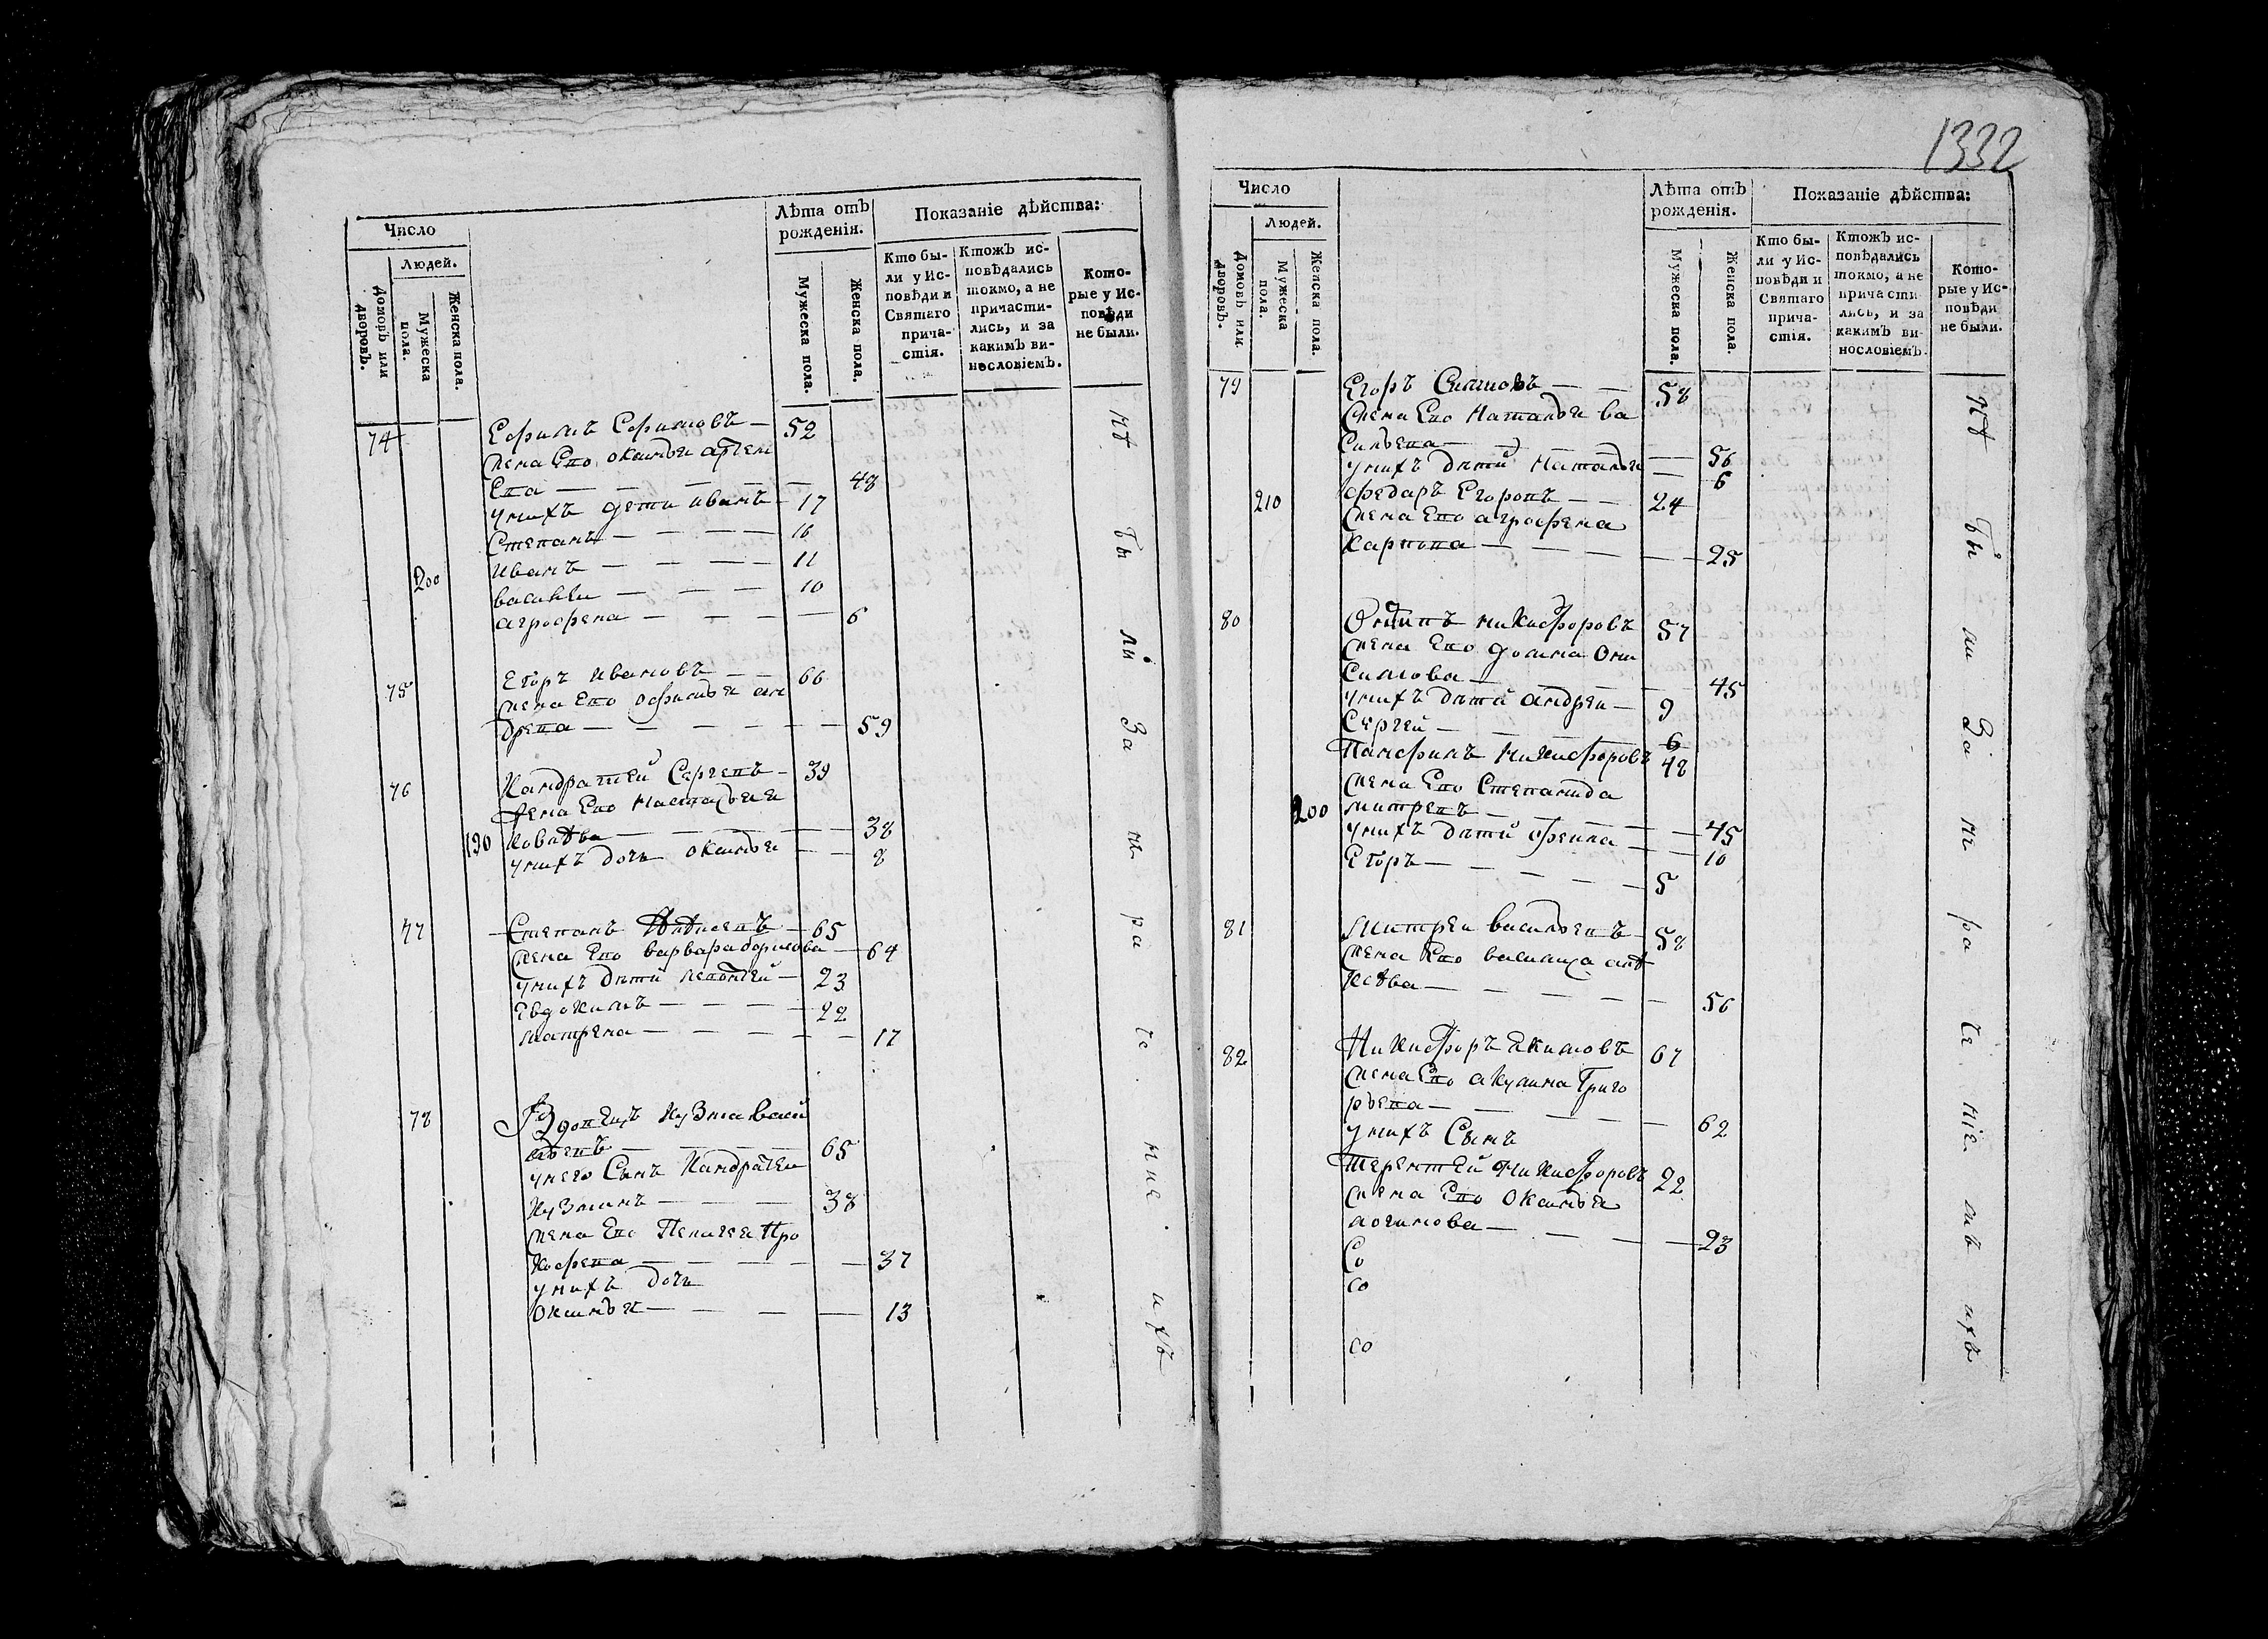 Число
Людей.
Домовъ или дворовъ.
Мужеска пола.
Женска пола.
Лѣта отъ рожденія.
Мужеска пола.
Женска пола.
Показаніе дѣйства:
Кто бы-
ли у Ис-
повѣди и
Святаго
прича-
стія.
Ктожъ ис-
повѣдались
токмо, а не
причасти-
лись, и за
какимъ ви-
нословіемъ.
Кото-
рые у Ис-
повѣди
не были.
74 Ефимъ Ефимовъ — 52
жена Ево оксинья артем
Ева — 48
унихъ дети иванъ — 17
Степанъ — 16
200 иванъ — 11
василеи — 10
агрофена — 6
75 Егоръ ивановъ — 66
жена Ево офимья ан
древа — 59
76 Кандратей Сергевъ — 39
жена Ево Настасья я
190 ковлѣва — 38
унихъ дочь оксинья — 8
77 Степанъ — 65
жена Ево варвара борисова — 64
унихъ дѣти леонтей — 23
Евдокимъ — 22
матрена — 17
78 Вдовецъ Кузма васи
льевъ — 65
унего Сынъ Кандратеи
Кузминъ — 38
жена Ево Пелагея Про
кофева — 37
унихъ дочь
оксинья — 13
не бы ли За не ра че ние ихъ
1332
Число
Людей.
Домовъ или дворовъ.
Мужеска пола.
Женска пола.
Лѣта отъ рожденія.
Мужеска пола.
Женска пола.
Показаніе дѣйства:
Кто бы-
ли у Ис-
повѣди и
Святаго
прича-
стія.
Ктожъ ис-
повѣдались
токмо, а не
причасти-
лись, и за
какимъ ви-
нословіемъ.
Кото-
рые у Ис-
повѣди
не были.
79 Егоръ — 58
жена Ево Наталья ва
Сильева — 56
унихъ дѣти Наталья — 6
210 Федаръ Егоровъ — 24
жена Ево агрофена
Карпова — 25
80 Осипъ Никифоровъ 57
жена Ево домна Они
Симова — 45
унихъ дѣти андреи — 9
Сергей — 6
Памфилъ Никифоровъ 48
жена Ево Степанида
200 митревъ — 45
унихъ дѣти офенка — 10
Егоръ — 5
81 Митреи васильевъ — 58
жена Ево василиса алѣ
ксѣва — 56
82 Никифоръ Екимовъ 67
жена Ево акулина Григо
рьева — 62
унихъ Сынъ
Терентей Никифоровъ 22
жена Ево Оксинья
логинова — 23
Со
со
со
не бы ли За не ра че ніе ихъ